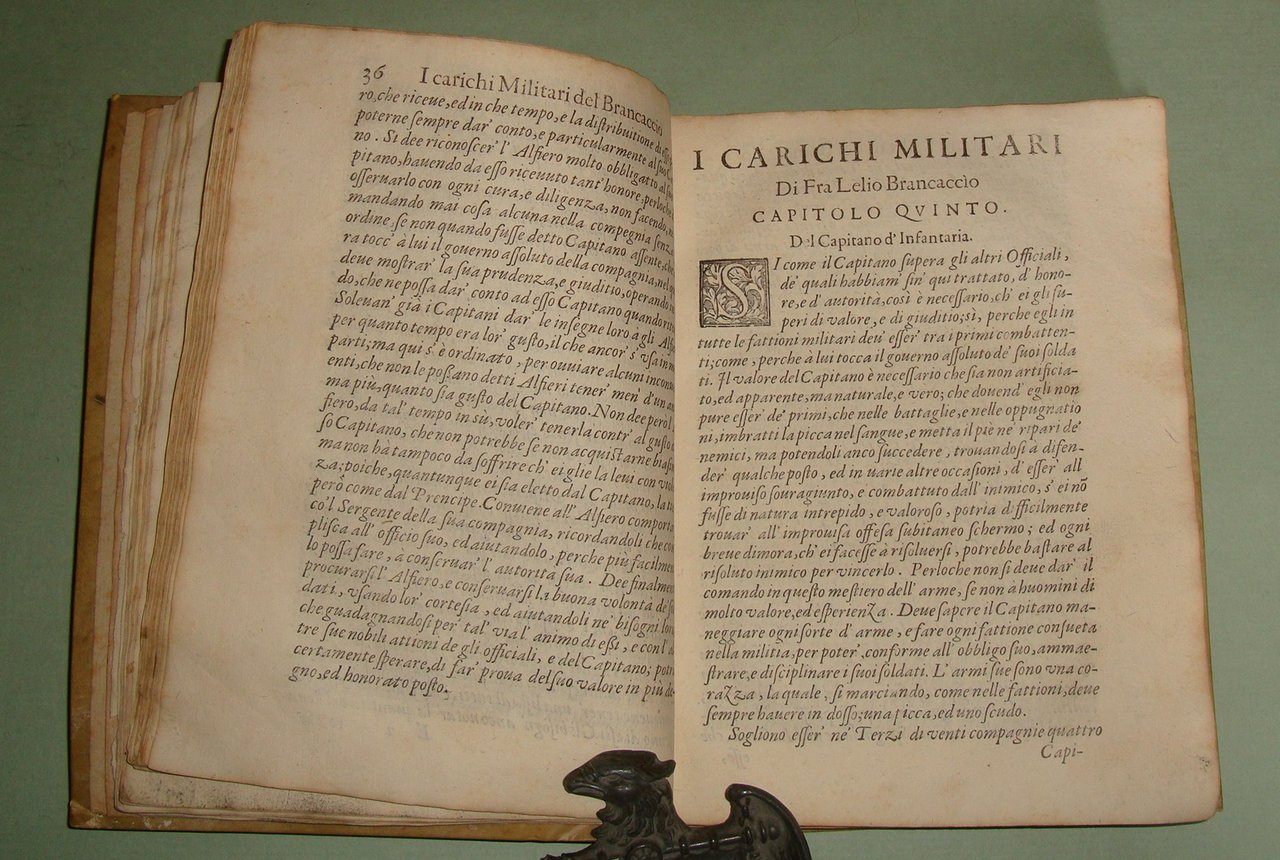 36 I carichi Militari del Brancaccio
ro, che riceue, ed in che tempo, e la distribuitione di
poterne sempre dar' conto, e particularmente al suo
no. Si dee riconoscer' l' Alfiero molto obbligato al
pitano, hauendo da esso riceuuto tant' honore, perloche
osseruarlo con ogni cura, e diligenza, non facendo,
mandando mai cosa alcuna nella compagnia
ordine, se non quando fusse detto Capitano assente,
ra tocc' à lui il gouerno assoluto della compagnia,
deue mostrar' la sua prudenza, e giuditio, operando
do, che ne possa dar' conto ad esso Capitano quando
Soleuan' già i Capitani dar' le insegne loro à gli
per quanto tempo era lor' gusto, il che ancor' s' vsa in
parti; ma qui s' è ordinato, per ouuiare alcuni
enti, che non le possano detti Alfieri tener' men' d' un
ma più, quanto sia gusto del Capitano. Non dee però l'
fiero, da tal' tempo in sù, voler' tenerla contr' al gusto
so Capitano, che non potrebbe se non acquistarne
ma non hà tampoco da soffrire ch' ei glie la leui con
za; poiche, quantunque ei sia eletto dal Capitano, la
però come dal Prencipe. Conuiene all' Alfiero
co'l Sergente della sua compagnia, ricordandoli che
plisca all' officio suo, ed aiutandolo, perche più
lo possa fare, à conseruar' l' autorità sua. Dee
procurarsi l' Alfiero, e conseruarsi la buona volontà de'
dati, vsando lor' cortesia, ed aiutandoli ne' bisogni
che guadagnandosi per' tal' via l' animo di essi, e con l'
tre sue nobili attioni de gli officiali, e del Capitano;
certamente sperare, di far' proua del suo valore in più
gno, ed honorato posto.
I CARICHI MILITARI
Di Fra Lelio Brancaccio
CAPITOLO QVINTO.
Del Capitano d' Infantaria.
SI come il Capitano supera gli altri Officiali,
de' quali habbiam' fin' qui trattato, d' hono-
re, ed' autorità, così è necessario, ch' ei gli su-
peri di valore, e di giuditio; sì, perche egli in
tutte le fattioni militari deu' esser' tra i primi combatten-
ti; come, perche à lui tocca il gouerno assoluto de' suoi solda
ti. Il valore del Capitano è necessario che sia non artificia-
to, ed apparente, ma naturale, e vero; che douend' egli non
pure esser' de' primi, che nelle battaglie, e nelle oppugnatio
ni, imbratti la picca nel sangue, e metta il piè ne' ripari de'
nemici, ma potendoli anco succedere, trouandosi à difen-
der' qualche posto, ed in uarie altre occasioni, d' esser' all
improuiso souragiunto, e combattuto dall' inimico, s' ei nõ
fusse di natura intrepido, e valoroso, potria difficilmente
trouar' all' improuisa offesa subitaneo schermo; ed ogni
breue dimora, ch' ei facesse à risoluersi, potrebbe bastare al
risoluto inimico per vincerlo. Perloche non si deue dar' il
comando in questo mestiero dell' arme, se non à huomini di
molto valore, ed esperienza. Deue sapere il Capitano ma-
neggiare ogni sorte d' arme, e fare ogni fattione consueta
nella militia, per poter', conforme all' obbligo suo, ammae-
strare, e disciplinare i suoi soldati. L' armi sue sono vna co-
razza, la quale, si marciando, come nelle fattioni, deue
sempre hauere in dosso; una picca, ed uno scudo.
Sogliono esser' ne' Terzi di venti compagnie quattro
Capi-